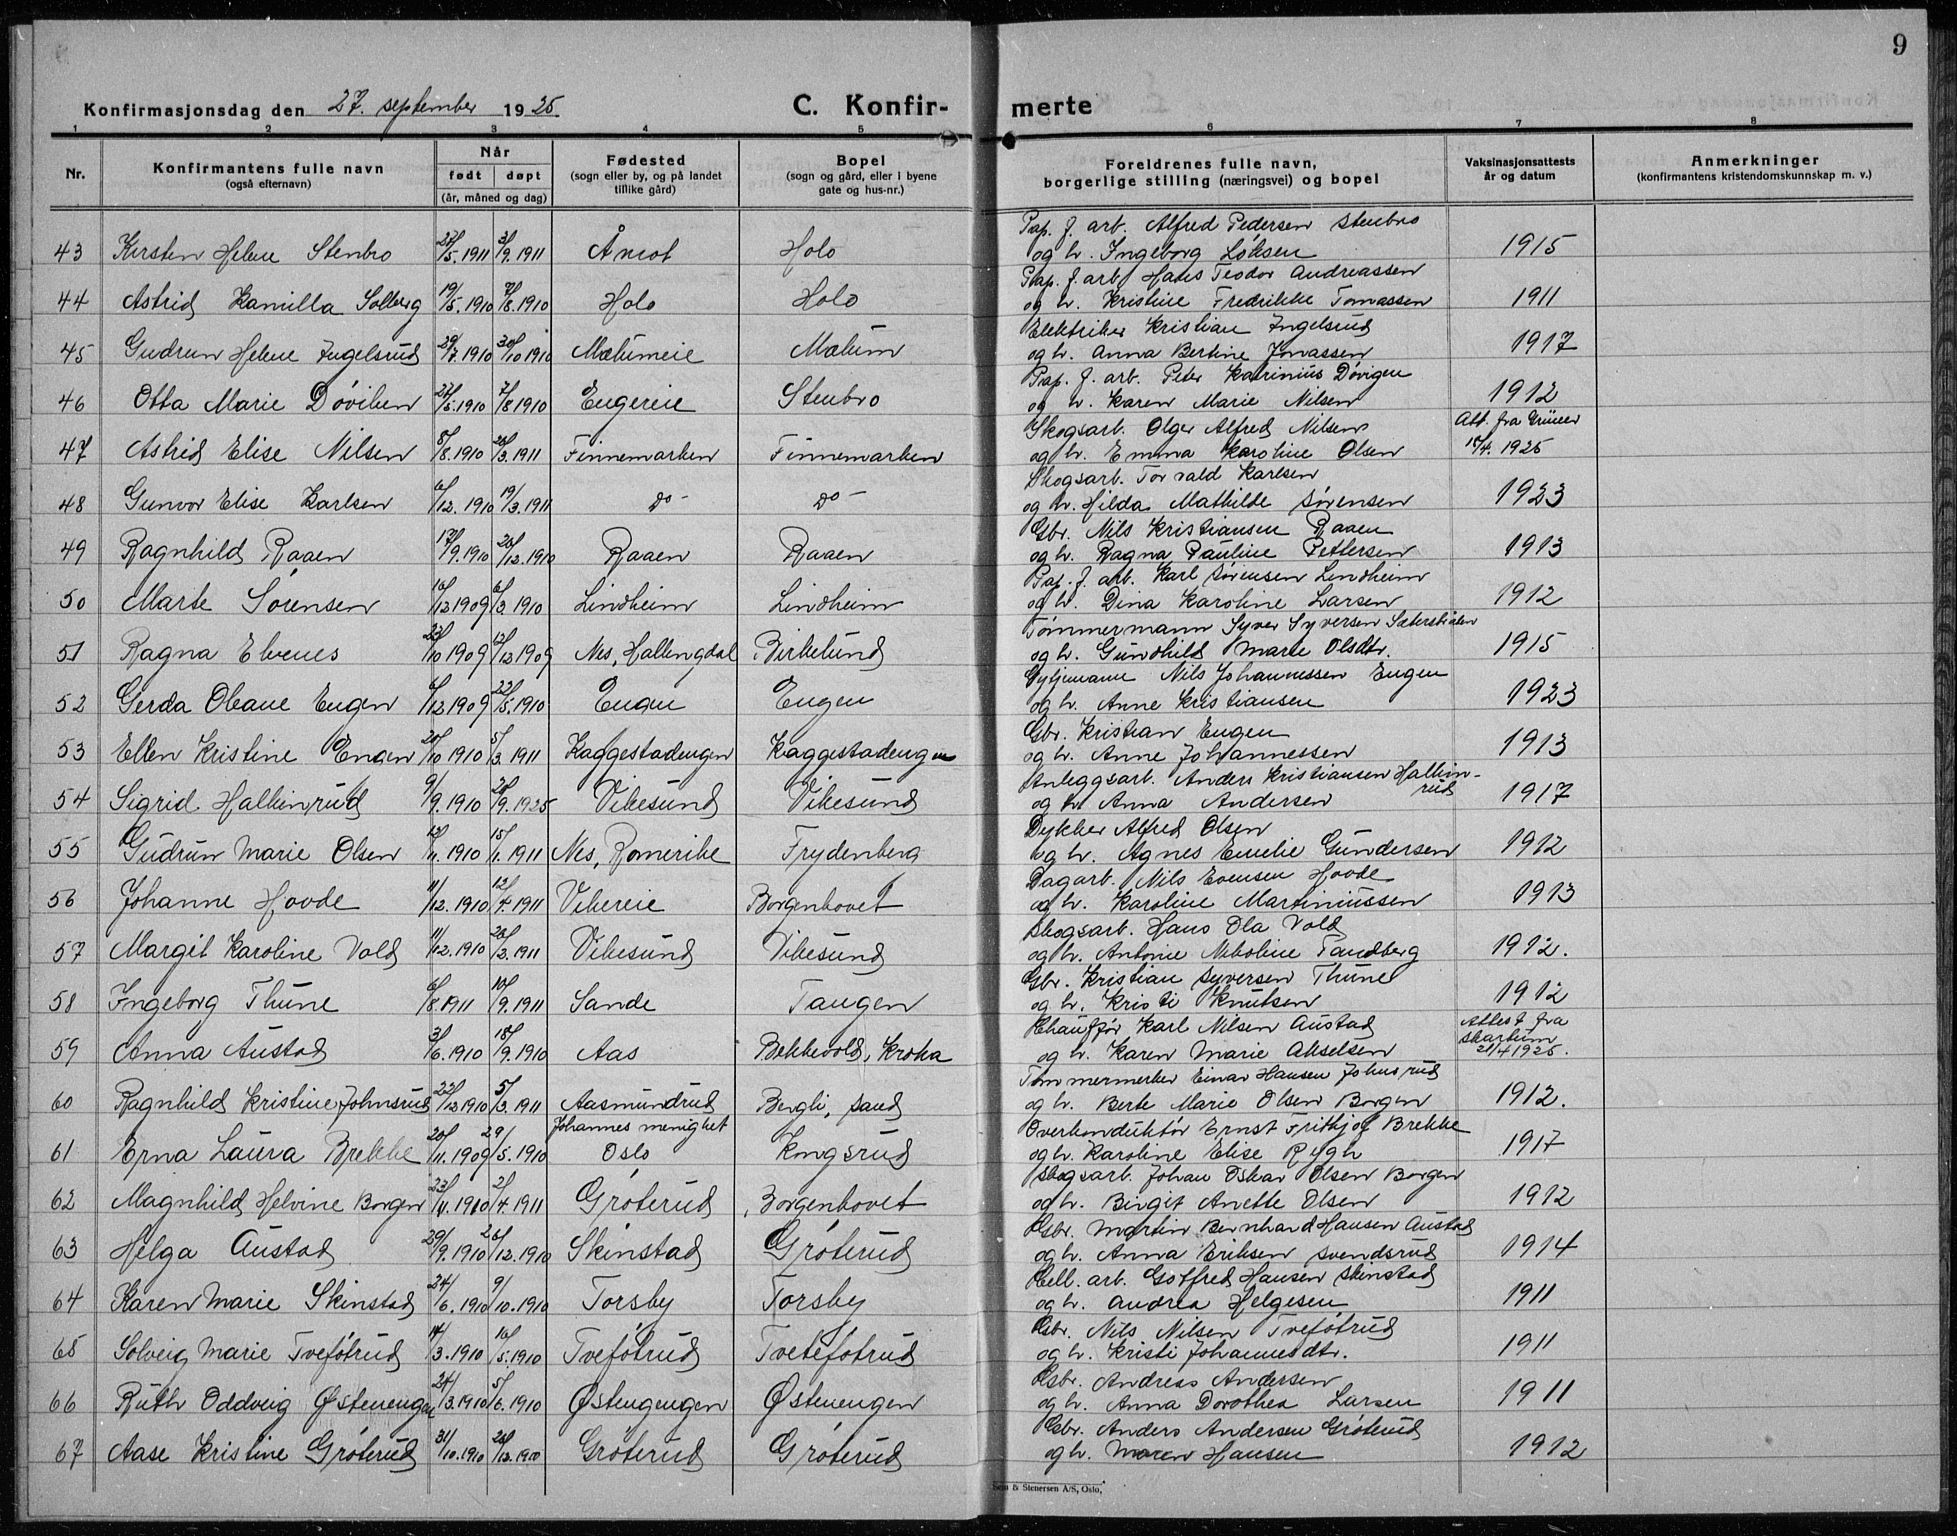 9
Konfirmasjonsdag den 27. september 1925.
C. Konfirmerte
1 2 3 4 5 6 7 8
Nr. Konfirmantens fulle navn (også efternavn) Når født døpt (år, måned og dag) Fødested (sogn eller by, og på landet tillike gård) Bopel (sogn og gård, eller i byene gate og hus-nr.) Foreldrenes fulle navn, borgerlige stilling (næringsvei) og bopel Vaksinasjonsattests år og datum Anmerkninger (konfirmantens kristendomskunnskap m. v.)
Pap. f. arb. Alfred Pedersen Stenbro
43 Kirsten Helene Stenbro /5. 1911 /9. 1911 Åmot Holo og h. Ingeborg Løksen 1915
Pap. f. arb. Hans Teodor Andreassen
44 Astrid Kamilla Solberg 19/5. 1910 7/8. 1910 Holo Holo og h. Kristine Fredrikke Tomassen 1911
Elektriker Kristian Ingelsrud
45 Gudrun Helene Ingelsrud 29/7. 1910 30/10 1910 Mælumeie Mælum og h. Anna Bertine Jonassen 1917
Pap. f. arb. Peter Katrinius Døvigen
46 Otta Marie Døviken /5. 1910 7/8 1910 Engereie Stenbro og h. Karen Marie Nilsen 1912
Skogsarb. Olger Alfred Nilsen Att. fra
47 Astrid Elise Nilsen /8. 1910 /3. 1911 Finnemarken Finnemarken og h. Emma Karoline Olsen /4. 1925
Skogsarb. Torvald Karlsen
48 Gunvor Elise Karlsen 6/12. 1910 19/3. 1911 do - do - og h. Hilda Mathilde Sørensen 1923
Gbr. Nils Kristiansen Raaen
49 Ragnhild Raaen /9. 1910 26/12. 1910 Raaen Raaen og h. Ragna Pauline Pettersen 1913
Pap. f. arb. Karl Sørensen Lindheim
50 Marte Sørensen /12 1909 6/3. 1910 Lindheim Lindheim og h. Dina Karoline Larsen 1912
Tømmermann Syver Syversen
51 Ragna Elvenes /10 1909 12/12 1909 Nes, Hallingdal Birkelund og h. Gundhild Marte Olsdtr. 1915
Nils Johannessen Engen
52 Gerda Oleane Engen 6/12 1909 22/5. 1910 Engen Engen og h. Anne Kristiansen 1923
Gbr. Kristian Engen
53 Ellen Kristine Engen 20/10 1910 5/3. 1911 Kaggestadengen Kaggestadengen og h. Anne Johannessen 1913
Anleggsarb. Anders Kristiansen Halkinrud
54 Sigrid Halkinrud 9/9. 1910 /9. 1925 Vikesund Vikesund og h. Anna Andersen 1917
Dykker Alfred Olsen
55 Gudrun Marie Olsen /11. 1910 15/1. 1911 Nes, Romerike Frydenberg og h. Agnes Emelie Gundersen 1912
Dagarb. Nils Evensen Hovde
56 Johanne Hovde 11/12. 1910 /4. 1911 Vikereie Borgenhovet og h. Karoline Martiniussen 1913
Skogsarb. Hans Ola Vold
57 Margit Karoline Vold 11/12. 1910 26/2. 1911 Vikesund Vikesund og h. Antonie Nikoline Tandberg 1912.
Gbr. Kristian Syversen Thune
58 Ingeborg Thune 6/8 1911 10/9. 1911 Sande Tangen og h. Kristi Knutsen 1912
Chauffør Karl Nilsen Austad Attest fra
59 Anna Austad 3/6. 1910 18/9. 1910 Aas Bekkevold, Kroka og h. Karen Marie Akselsen /4 1925.
Tømmermerker Einar Hansen Johnsrud
60 Ragnhild Kristine Johnsrud 22/12 1910 5/3. 1911 Aasmundrud Bergli, Sand og h. Berte Marie Olsen Borgen 1912.
Johannes menighet Overkonduktør Ernst Fritjof Brekke
61 Erna Laura Brekke 20/11. 1909 29/5. 1910 Oslo Kongsrud og h. Karoline Elise Rygh 1917
Skogsarb. Johan Oskar Olsen Borgen
62 Magnhild Helvine Borgen 23/11. 1910 2/4. 1911 Grøterud Borgenhovet og h. Birgit Anette Olsen 1912
Gbr. Martin Bernhard Hansen Austad
63 Helga Austad 29/9. 1910 26/12. 1910 Skinstad Grøterud og h. Anna Eriksen Svendsrud 1914
Cell. arb. Gotfred Hansen Skinstad
64 Karen Marie Skinstad 24/6. 1910 9/10. 1910 Torsby Torsby og h. Andrea Helgesen 1911
Gbr. Nils Nilsen Tvefotrud
65 Solveig Marie Tveføtrud 14/3. 1910 16/5. 1910 Tveføtrud Tvetefotrud og h. Kristi Johannesdtr. 1911
Gbr. Andreas Andersen
66 Ruth Oddveig Østenengen 24/3. 1910 5/6. 1910 Østengengen Østenengen og h. Anna Dorothea Larsen 1911
Gbr. Anders Andersen Grøterud
67 Aase Kristine Grøterud 31/10. 1910 26/12. 1910 Grøterud Grøterud og h. Maren Hansen 1912
Sem & Stenersen A/S, Oslo.